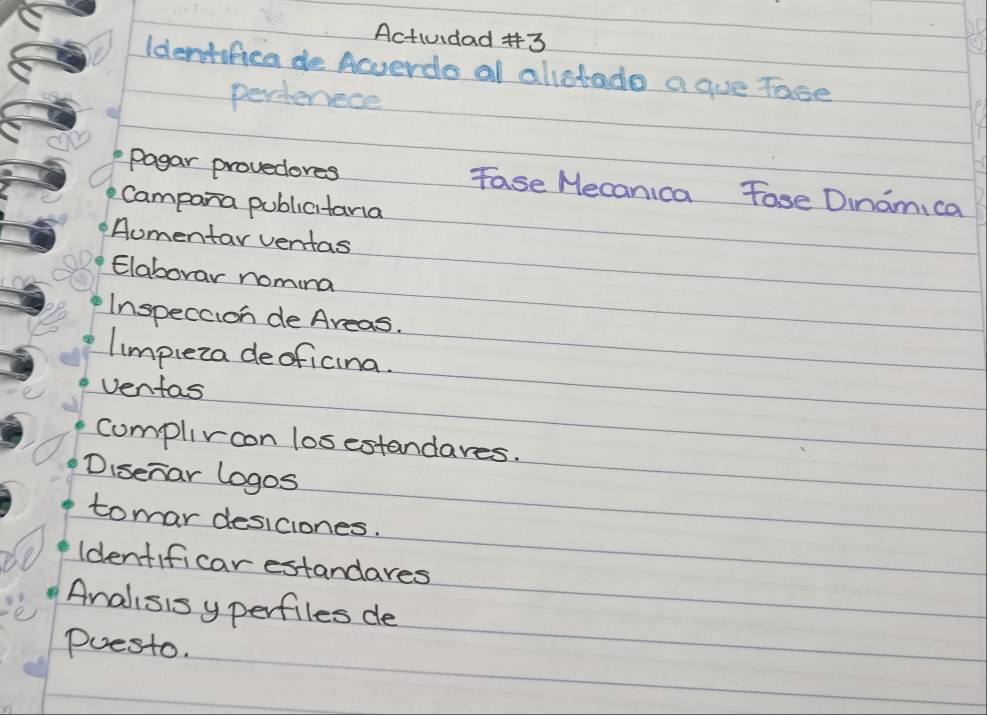 Actividad #3
Identifica de Acuerdo al alistado a que Fase
pertenece
• pagar provedores
Fase Mecanica Fase Dinámica
• Campaña publicitaria
• Aumentar ventas
• Elaborar nomina
• Inspección de Areas.
• limpieza de oficina.
• ventas
• cumplir con los estandares.
• Diseñar logos
• tomar desiciones.
• Identificar estandares
• Analisis y perfiles de
puesto.